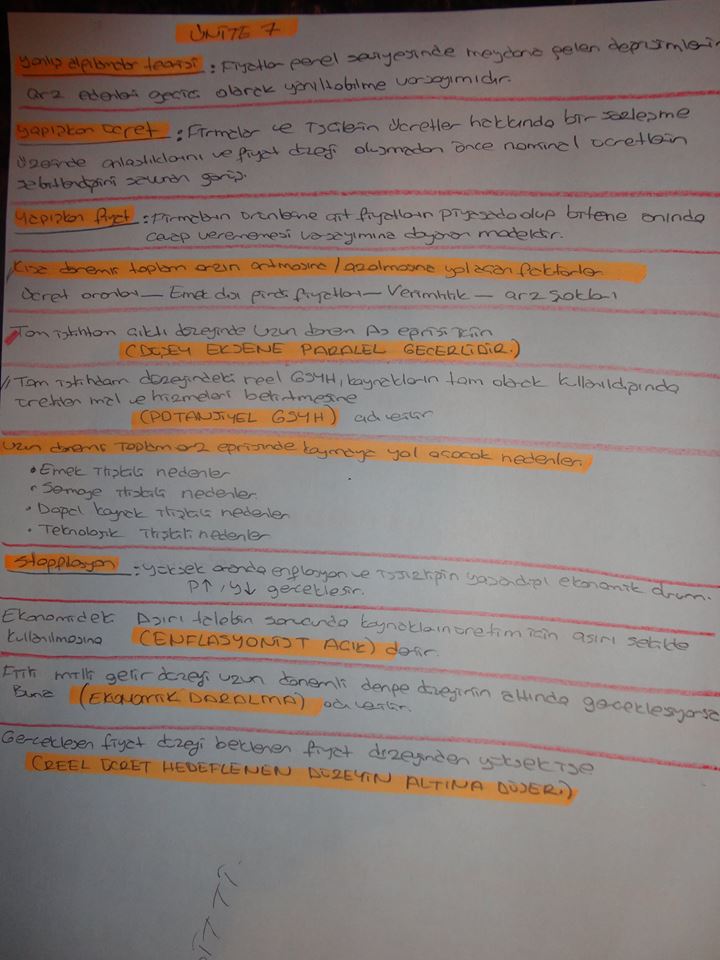 ÜNİTE 7
Yanlış algılamalar teorisi : Fiyatlar genel seviyesinde meydana gelen değişimlerin
arz edenleri geçici olarak yanıltabilme varsayımıdır.
Yapışkan ücret : Firmalar ve İşçilerin ücretler hakkında bir sözleşme
üzerinde anlaştıklarını ve fiyat düzeyi oluşmadan önce nominal ücretlerin
sabitlendiğini savunan görüş.
Yapışkan fiyat : Firmaların ürünlerine ait fiyatların piyasada olup bitene anında
cevap verememesi varsayımına dayanan modeldir.
Kısa dönemli toplam arzın artmasına / azalmasına yol açan faktörler
Ücret oranları — Emek dışı girdi fiyatları — Verimlilik — arz şokları
Tam istihdam düzeyinde uzun dönem AS eğrisi için
(DÜŞEY EKSENE PARALEL GEÇERLİDİR.)
// Tam istihdam düzeyindeki reel GSYH, kaynakların tam olarak kullanıldığında
üretilen mal ve hizmetleri belirtmesine
(POTANSİYEL GSYH) adı verilir
Uzun dönemli toplam arz eğrisinde kaymaya yol açacak nedenler.
• Emek ilişkili nedenler
• Sermaye ilişkili nedenler.
• Doğal kaynak ilişkili nedenler
• Teknolojik ilişkili nedenler
Stagflasyon : Yüksek oranda enflasyon ve işsizliğin yaşandığı ekonomik durum.
P↑, Y↓ gerçekleşir.
Ekonomideki Aşırı talebin sonucunda kaynakların üretim için aşırı şekilde
kullanılmasına (ENFLASYONİST AÇIK) denir.
Fiili milli gelir düzeyi uzun dönemli denge düzeyinin altında gerçekleşiyorsa
Buna (EKONOMİK DARALMA) adı verilir.
Gerçekleşen fiyat düzeyi beklenen fiyat düzeyinden yüksek ise
(REEL ÜCRET HEDEFLENEN DÜZEYİN ALTINA DÜŞER.)